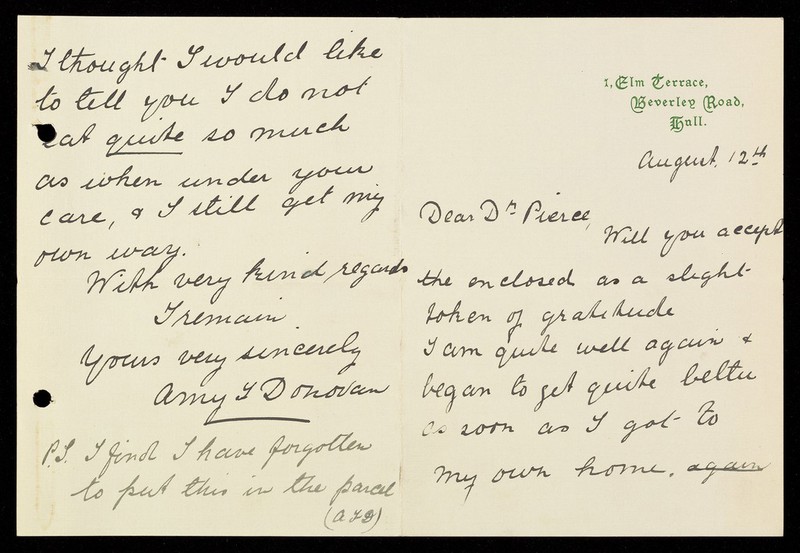 1, Elm Terrace,
Beverley Road,
Hull.
August. 12th
Dear Dr Pierce,
Will you accept
the enclosed as a slight
token of gratitude
I am quite well again &
began to get quite better
as soon as I got to
my own home. again
I thought I would like
to tell you I do not
eat quite so much
as when under your
care, & I still get my
own way.
With very kind regards
I remain
Yours very sincerely
Amy I Donovan
P.S. I find I have forgotten
to put this in the parcel
(A I D)